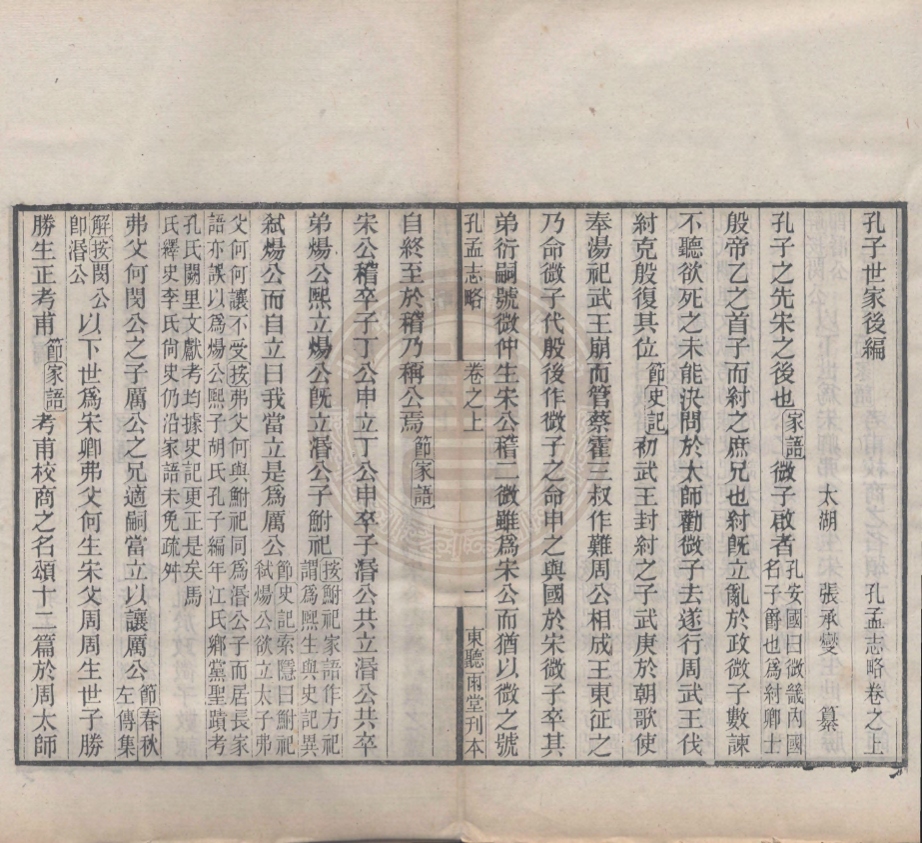 孔子世家後編　孔孟志略卷之上
太湖　張承燮　纂
孔子之先宋之後也家語微子啟者孔安國曰微畿內國名子爵也爲紂卿士
殷帝乙之首子而紂之庶兄也紂旣立亂於政微子數諫
不聽欲死之未能決問於太師勸微子去遂行周武王伐
紂克殷復其位節史記初武王封紂之子武庚於朝歌使
奉湯祀武王崩而管蔡霍三叔作難周公相成王東征之
乃命微子代殷後作微子之命申之與國於宋微子卒其
弟衍嗣號微仲生宋公稽二微雖爲宋公而猶以微之號
孔孟志略　卷之上　一　東聽雨堂刊本
自終至於稽乃稱公焉節家語
宋公稽卒子丁公申立丁公申卒子湣公共立湣公共卒
弟煬公熙立煬公旣立湣公子鮒祀按鮒祀家語作方祀謂爲熙生與史記異
弒煬公而自立曰我當立是爲厲公節史記索隱曰鮒祀弒煬公欲立太子弗
父何何讓不受按弗父何與鮒祀同爲湣公子而居長家
語亦誤以爲煬公熙子胡氏孔子編年江氏鄉黨聖蹟考
孔氏闕里文獻考均據史記更正是矣馬
氏繹史李氏尚史仍沿家語未免疏舛
弗父何閔公之子厲公之兄適嗣當立以讓厲公節春秋左傳集
解按閔公卽湣公以下世爲宋卿弗父何生宋父周周生世子勝
勝生正考甫節家語考甫校商之名頌十二篇於周太師